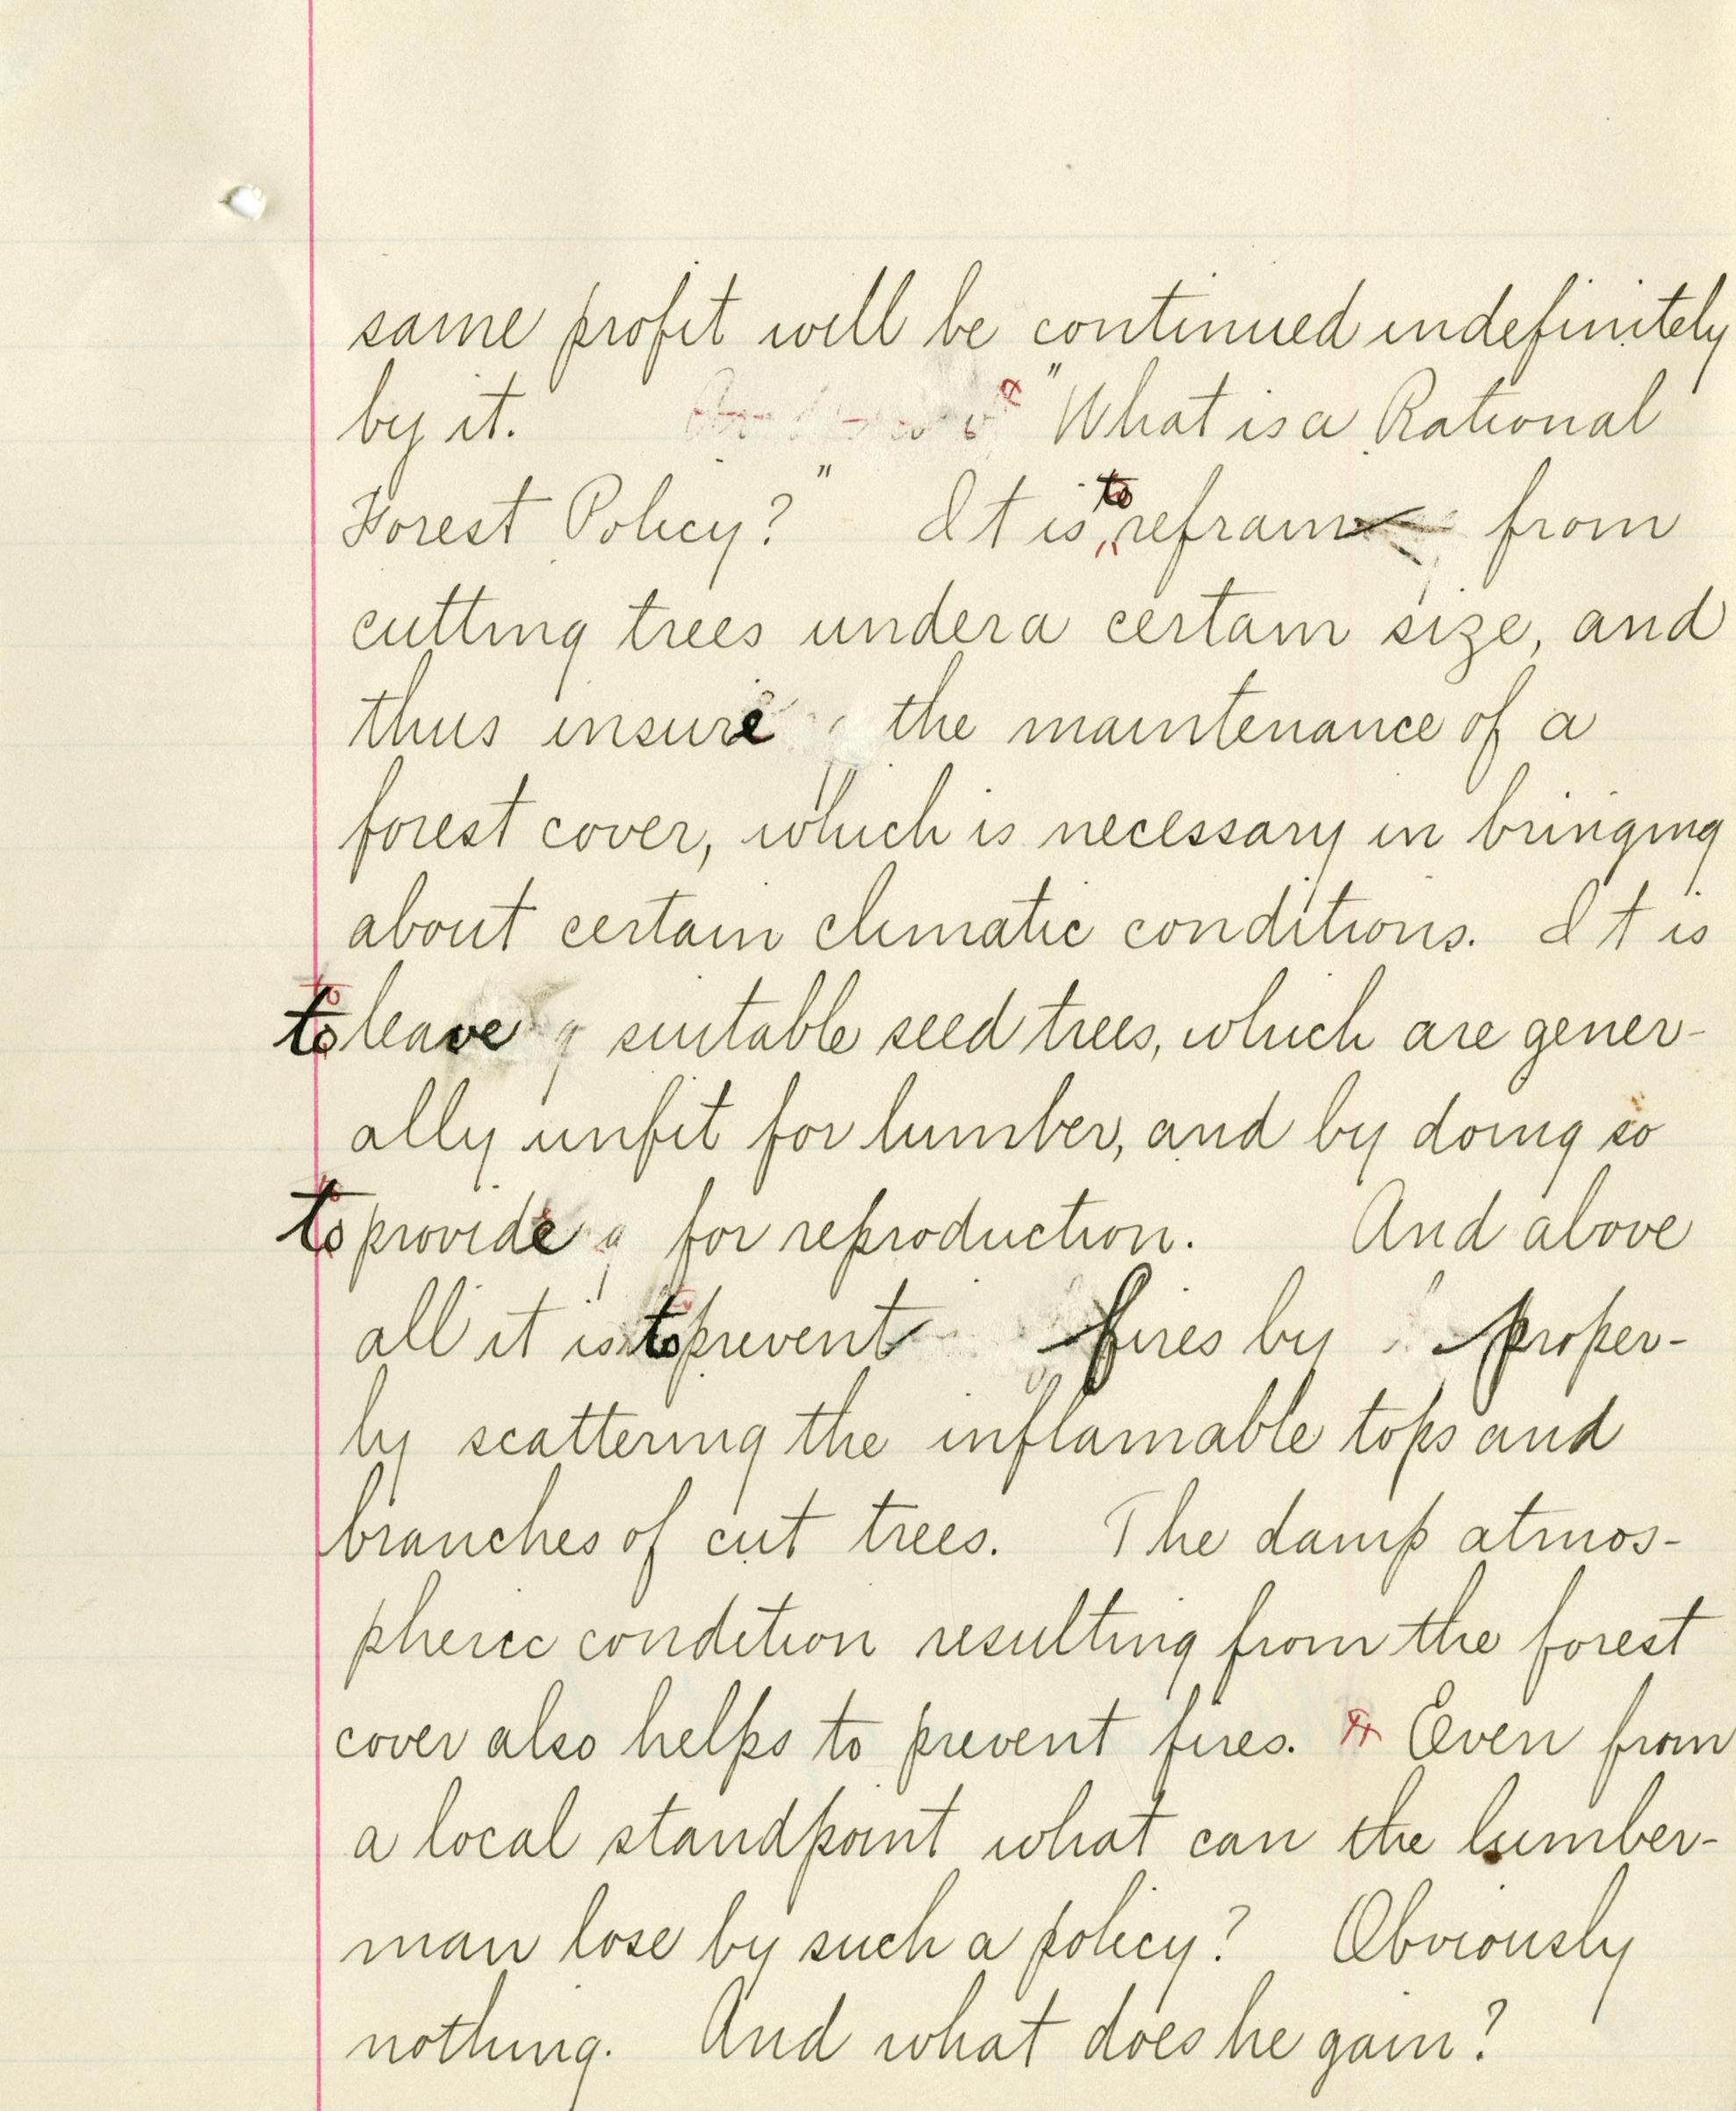 same profit will be continued indefinitely
by it. "What is a Rational
Forest Policy?" It is to refrain from
cutting trees under a certain size, and
thus insure the maintenance of a
forest cover, which is necessary in bringing
about certain climatic conditions. It is
to leave suitable seed trees, which are gener-
ally unfit for lumber, and by doing so
to provide for reproduction. And above
all it is to prevent fires by proper-
ly scattering the inflamable tops and
branches of cut trees. The damp atmos-
pheric condition resulting from the forest
cover also helps to prevent fires. Even from
a local standpoint what can the lumber-
man lose by such a policy? Obviously
nothing. And what does he gain?